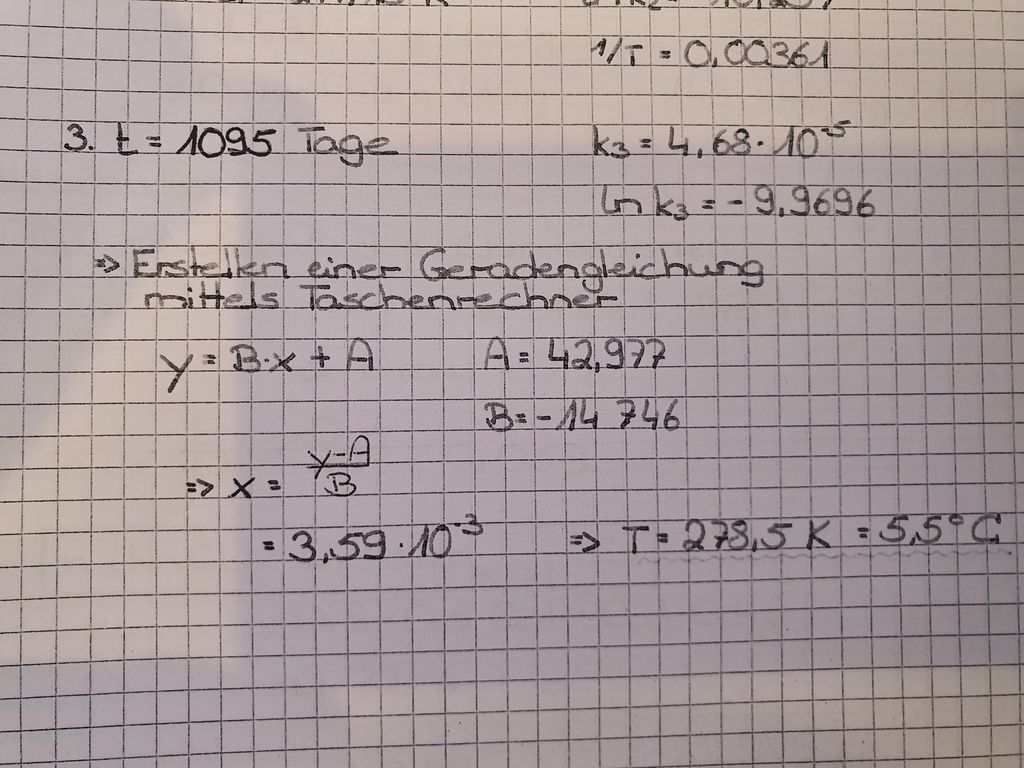 1/T = 0,00361
3. t = 1095 Tage k3 = 4,68 · 10^-5
ln k3 = - 9,9696
=> Erstellen einer Geradengleichung
mittels Taschenrechner
y = B·x + A A = 42,977
B = -14 746
=> x = (y-A)/B
= 3,59 · 10^-3 => T = 278,5 K = 5,5°C